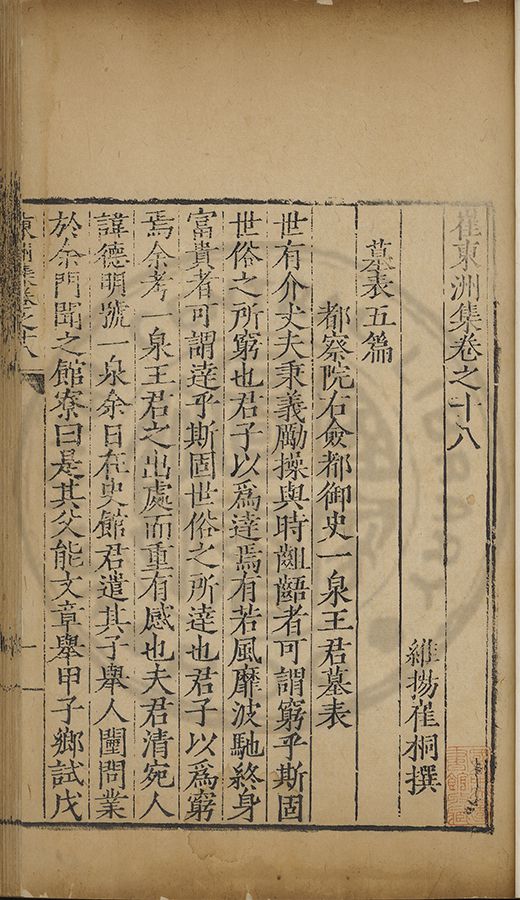 崔東洲集卷之十八
維揚崔桐撰
墓表五篇
都察院右僉都御史一泉王君墓表
世有介丈夫秉義勵操與時齟齬者可謂窮乎斯固
世俗之所窮也君子以爲達焉有若風靡波馳終身
富貴者可謂達乎斯固世俗之所達也君子以爲窮
焉余考一泉王君之出處而重有感也夫君清宛人
諱德明號一泉余日在史館君遣其子舉人圍問業
於余門聞之館寮曰是其父能文章舉甲子鄉試戊
東洲集卷之十八
一